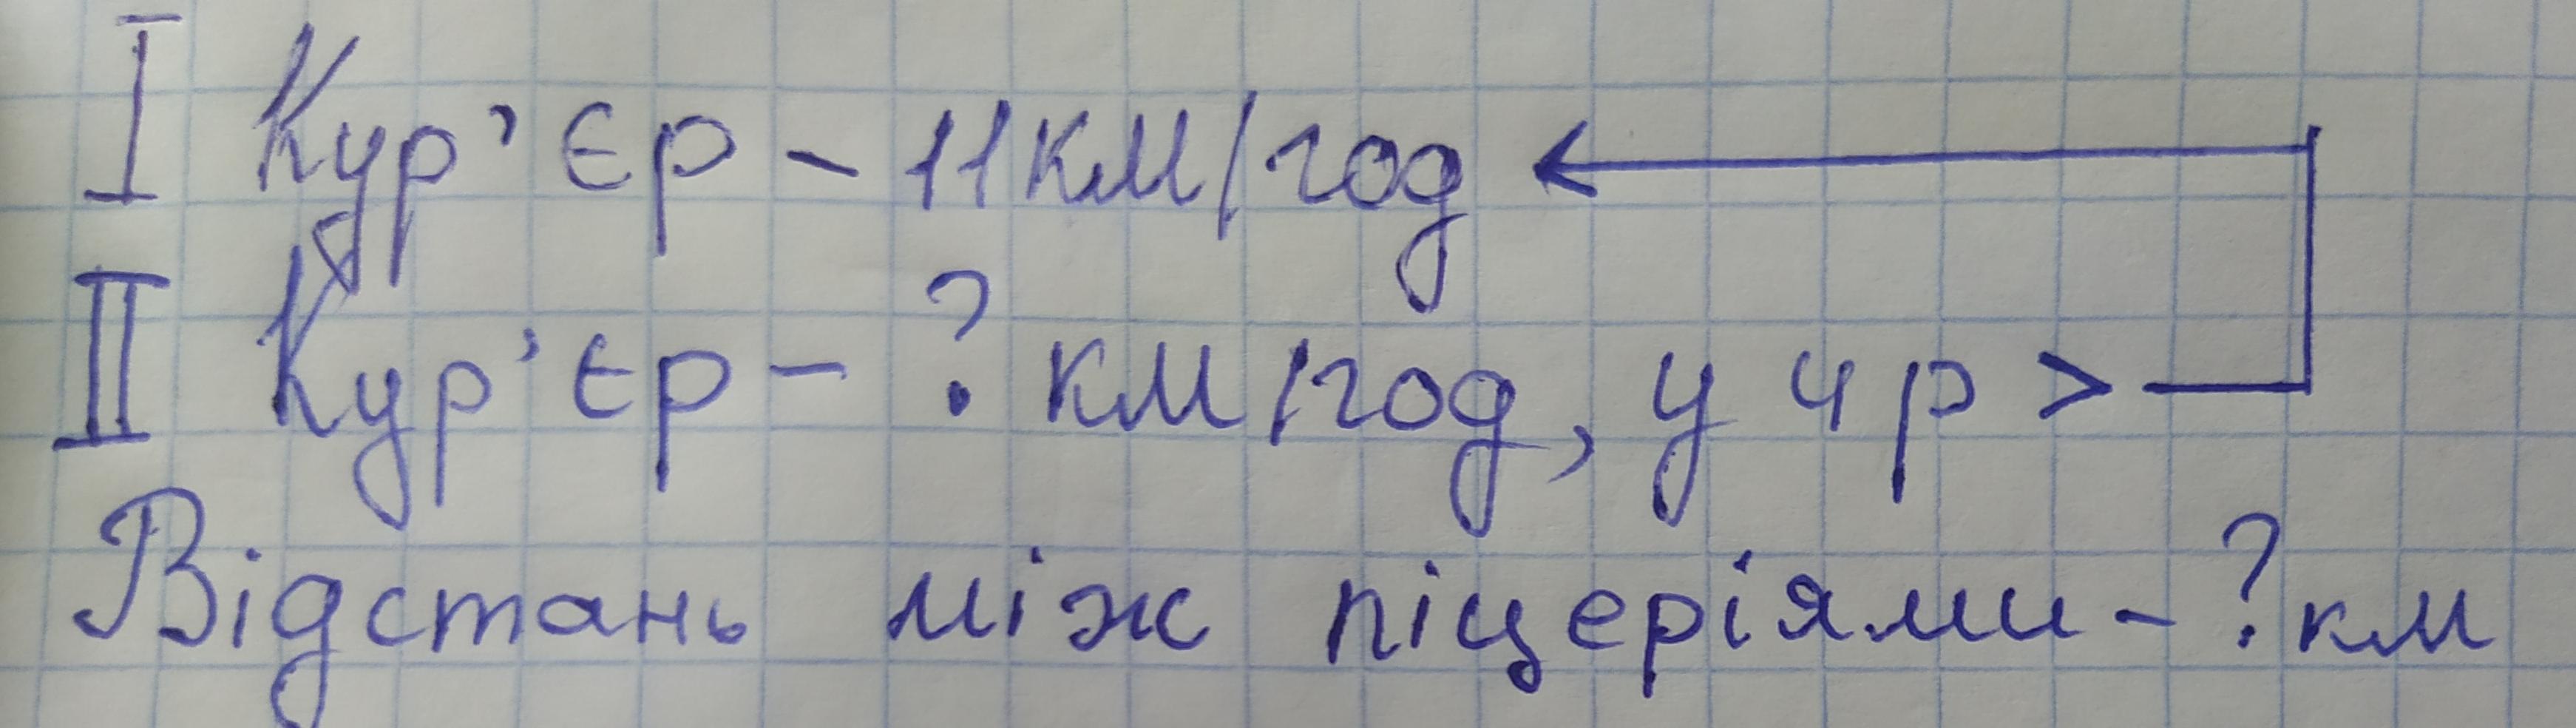 I Кур'єр - 11 км/год
II Кур'єр - ? км/год, у 4 р >
Відстань між піцеріями - ? км